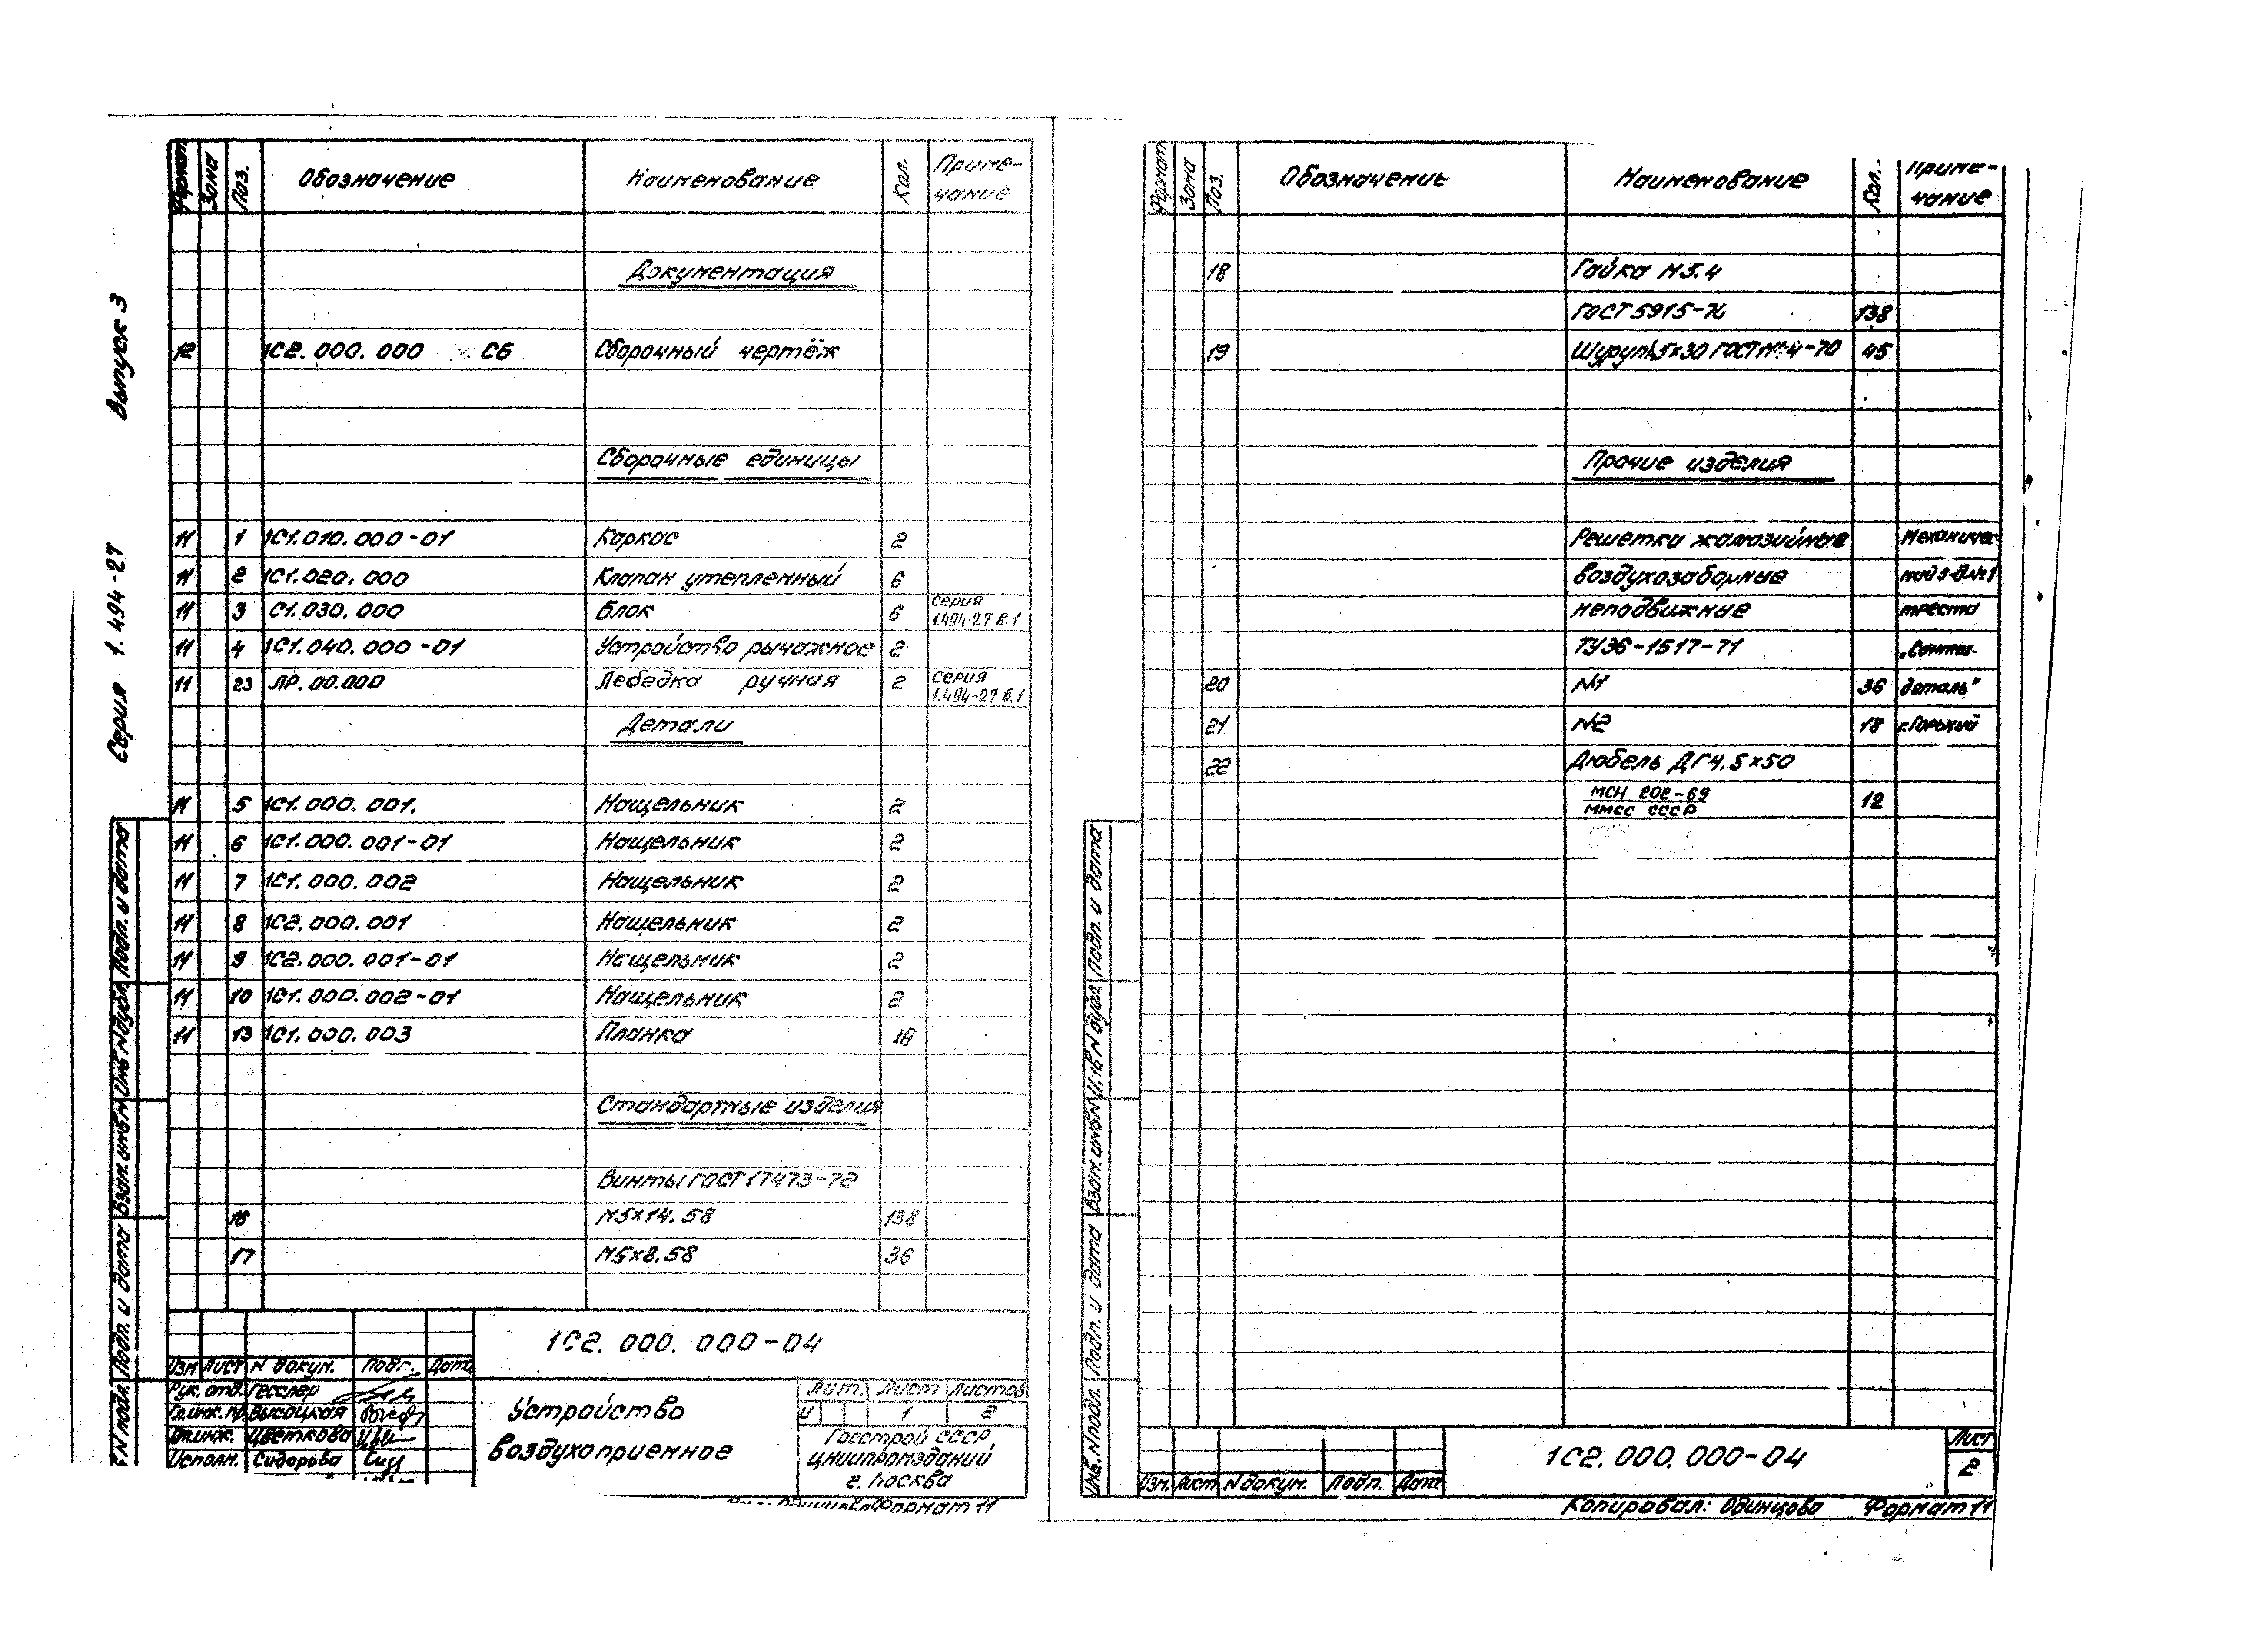 Серия 1.494-27 Выпуск 3
Формат Зона Поз. Обозначение Наименование Кол. Приме-
чание
Документация
12 1С2.000.000 СБ Сборочный чертёж
Сборочные единицы
11 1 1С1.010.000-01 Каркас 2
11 2 1С1.020.000 Клапан утепленный 6
11 3 С1.030.000 Блок 6 серия
1.494-27 в.1
11 4 1С1.040.000-01 Устройство рычажное 2
11 23 ЛР.00.000 Лебедка ручная 2 серия
1.494-27 в.1
Детали
11 5 1С1.000.001. Нащельник 2
11 6 1С1.000.001-01 Нащельник 2
11 7 1С1.000.002 Нащельник 2
11 8 1С2.000.001 Нащельник 2
11 9 1С2.000.001-01 Нащельник 2
11 10 1С1.000.002-01 Нащельник 2
11 13 1С1.000.003 Планка 18
Стандартные изделия
Винты ГОСТ 17473-72
16 М5×14.58 138
17 М5×8.58 36
1С2.000.000-04
Изм Лист N докум. Подп. Дата
Рук. отд. Гесслер
Гл.инж.пр. Высоцкая
Цветкова
Исполн. Сидорова
Устройство
воздухоприемное
Лит. Лист Листов
И 1 2
Госстрой СССР
ЦНИИПРОМЗДАНИЙ
г. Москва
Формат 11
N подл. Подп. и дата Взам.инв.N Инв.N дубл. Подп. и дата
Формат Зона Поз. Обозначение Наименование Кол. Приме-
чание
18 Гайка М5.4
ГОСТ 5915-70 138
19 Шуруп 5×30 ГОСТ 45
Прочие изделия
Решетки жалюзийные Механичес
воздухозаборные кий з-д №1
неподвижные треста
ТУ36-1517-71 „Сантех-
20 N1 36 деталь"
21 N2 18 г.Горький
22 Дюбель ДГ 4.5×50
МСН 202-69
ММСС СССР 12
1С2.000.000-04
Лист
2
Изм. Лист N докум. Подп. Дата
Копировал: Одинцова Формат 11
Инв.N подл. Подп. и дата Взам.инв.N Инв.N дубл. Подп. и дата